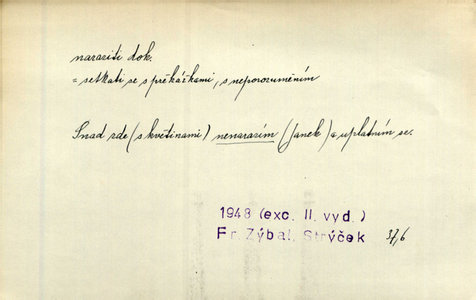 naraziti dok.
= setkati se s překážkami, s neporozuměním
Snad zde (s květinami) nenarazím (Janek) a uplatním se.
1948 (exc. II. vyd.)
Fr. Zýbal, Strýček 37,6